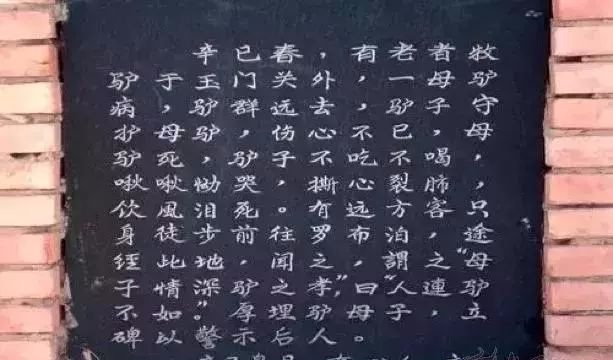 辛已春，有老者牧
驴于王门关外，一母驴
病，驴群远去，驴子守
护母驴，伤心不已，母
驴死，驴子不吃不喝，
啾啾恸哭，撕心裂肺，
饮風泪死。有远方客，只
身徒步前往罗布泊，途
经此地，闻之，謂之“母
子情深”，驴之孝，曰“人連驴
不如”。厚埋驴母子，立
碑以警示后人。